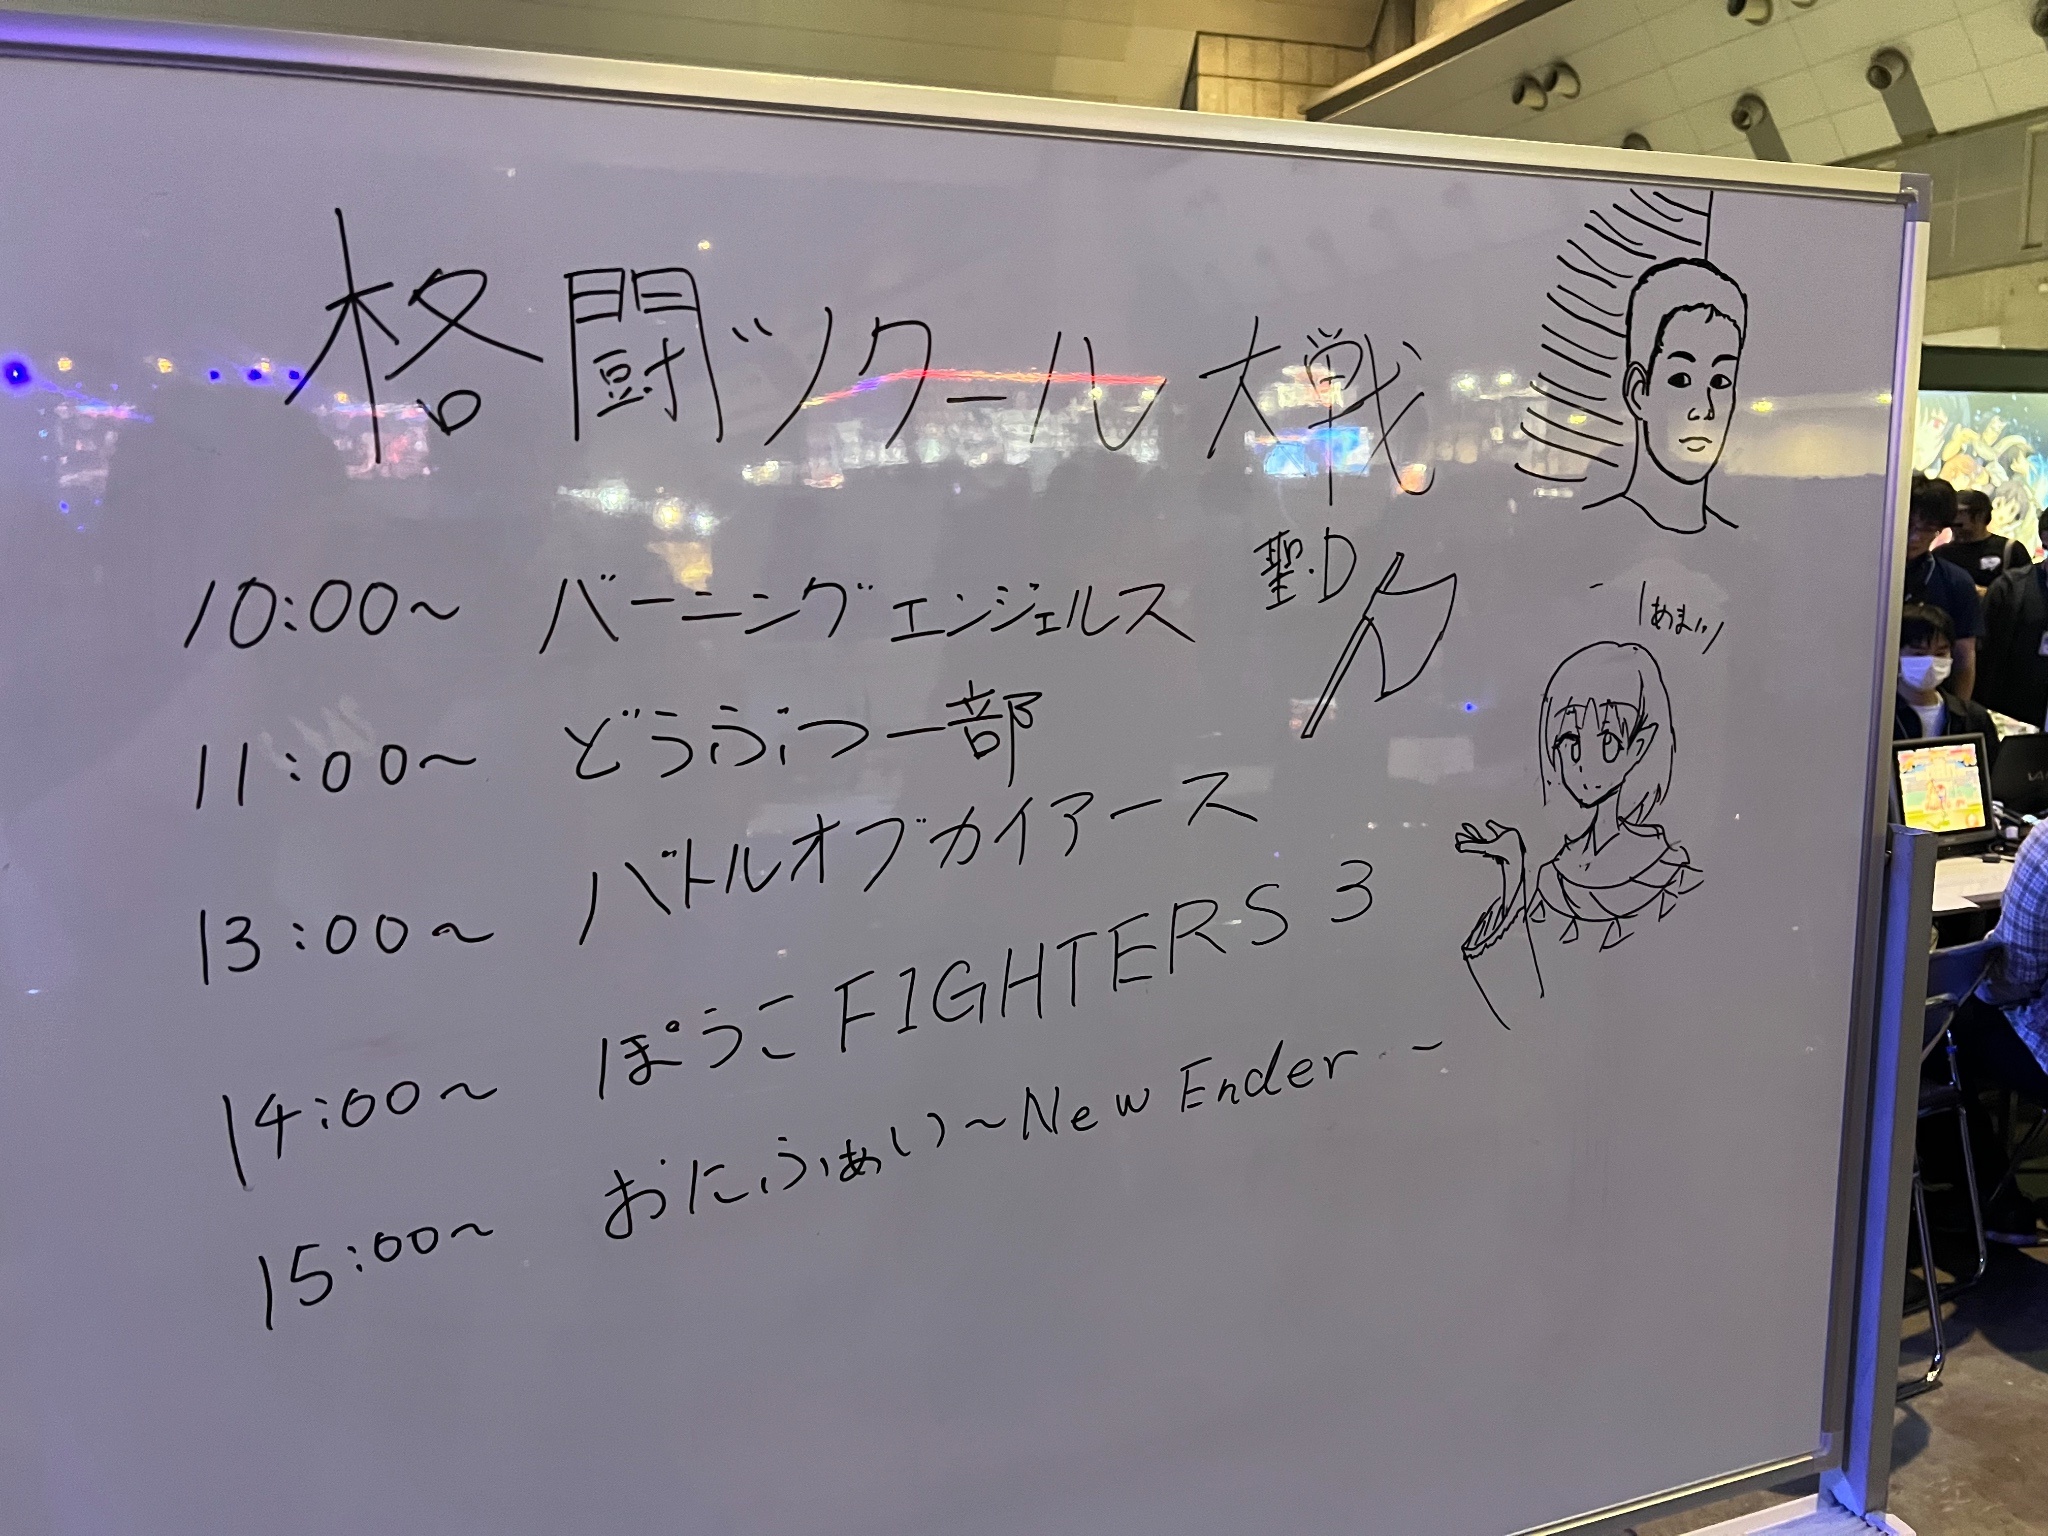 格闘ツクール大戦
10:00～ バーニングエンジェルス
聖.D
11:00～ どうぶつ一部
13:00～ バトルオブカイアース
14:00～ ぽうこFIGHTERS 3
15:00～ おにふぁい～New Ender～